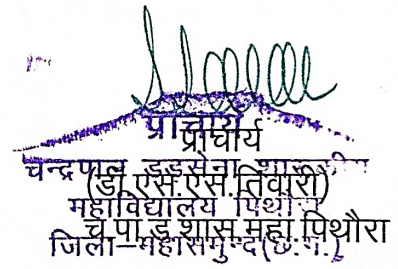 प्राचार्य
प्राचार्य
चन्द्रपाल डड़सेना शासकीय
(डॉ एस.एस.तिवारी)
महाविद्यालय पिथौरा
च.पा.ड.शास.महा.पिथौरा
जिला–महासमुन्द(छ.ग.)